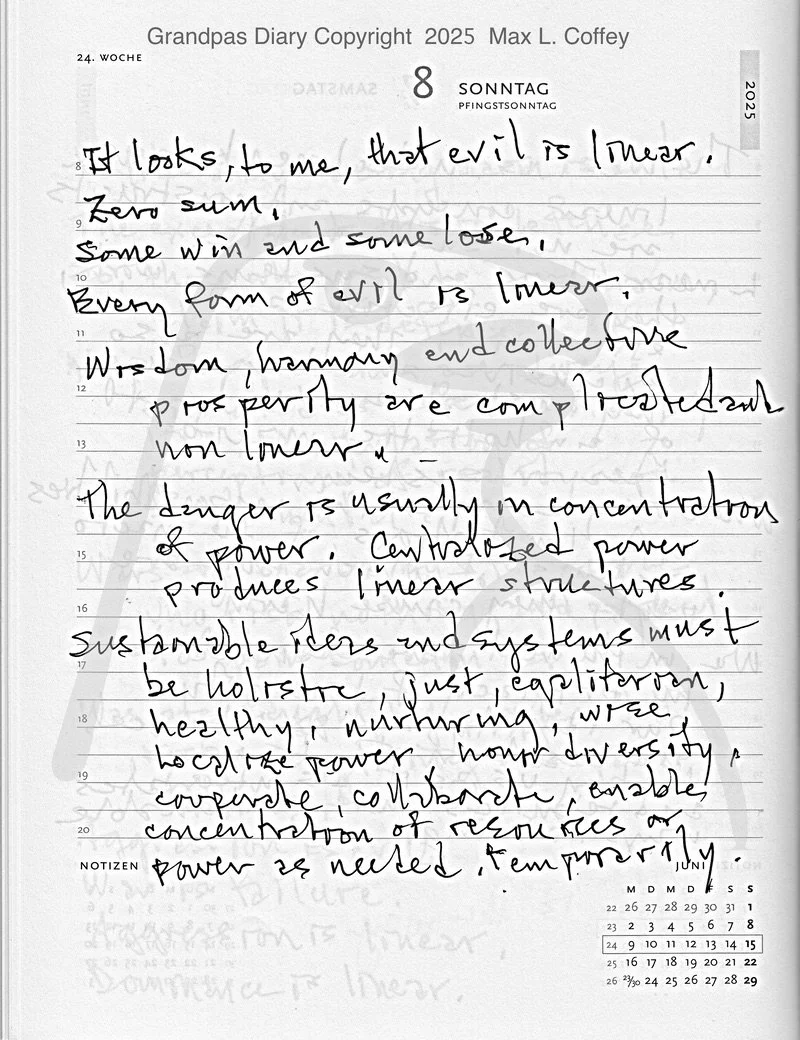 Grandpas Diary Copyright 2025 Max L. Coffey
24. WOCHE
8 SONNTAG
PFINGSTSONNTAG
2025
8 It looks, to me, that evil is linear.
Zero sum.
9
Some win and some lose.
10
Every form of evil is linear.
11
Wisdom, harmony and collective
12
prosperity are complicated and
13 non linear. –
The danger is usually in concentration
of power. Centralized power
15
produces linear structures.
16
Sustainable ideas and systems must
17
be holistic, just, egalitarian,
18 healthy, nurturing, wise,
localize power, honor diversity,
19
cooperate, collaborate, enable
20 concentration of resources or
NOTIZEN power as needed, temporarily.
JUNI
M D M D F S S
22 26 27 28 29 30 31 1
23 2 3 4 5 6 7 8
24 9 10 11 12 13 14 15
25 16 17 18 19 20 21 22
26 23/30 24 25 26 27 28 29
is linear.
Dominance is linear.